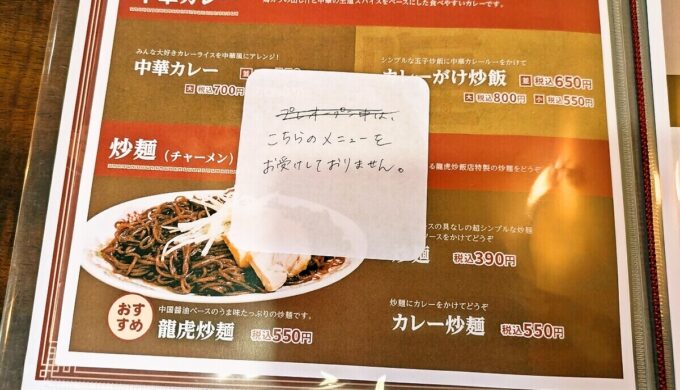 中華カレー
みんな大好きカレーライスを中華風にアレンジ！
中華カレー
大 税込700円
シンプルな玉子炒飯に中華カレールーをかけて
カレーがけ炒飯 並 税込650円
大 税込800円 小 税込550円
プレオープン中は、
こちらのメニューを
お受けしておりません。
炒麺（チャーメン）
る龍虎炒飯店特製の炒麺をどうぞ
ースの具なしの超シンプルな炒麺
ソースをかけてどうぞ
麺 税込390円
おす
すめ
中国醤油ベースのうま味たっぷりの炒麺です。
龍虎炒麺 税込550円
炒麺にカレーをかけてどうぞ
カレー炒麺 税込550円